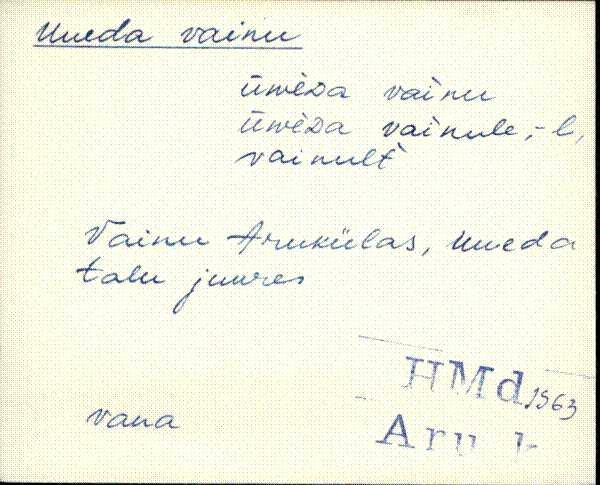 Uueda vainu
ūwèDa vàinu
ūwèDa vàinule, -l,
vainult
Vainu Aruküla​s, Uueda
talu juures
HMd 1963
vana
Aru k